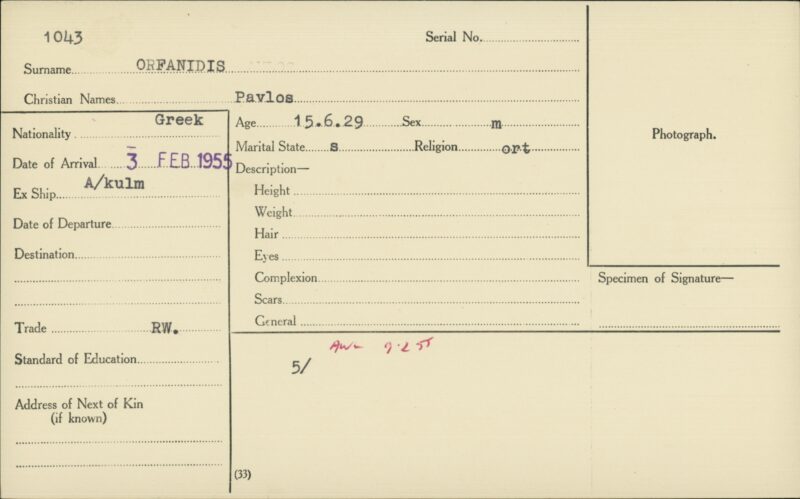 1043
Serial No.
Surname ORFANIDIS
Christian Names Pavlos
Nationality Greek
Date of Arrival 3 FEB 1955
Ex Ship A/kulm
Date of Departure
Destination
Trade RW.
Standard of Education
Address of Next of Kin
(if known)
Age 15.6.29 Sex m
Marital State s Religion ort
Description—
Height
Weight
Hair
Eyes
Complexion
Scars
General
5/
(33)
Photograph.
Specimen of Signature—